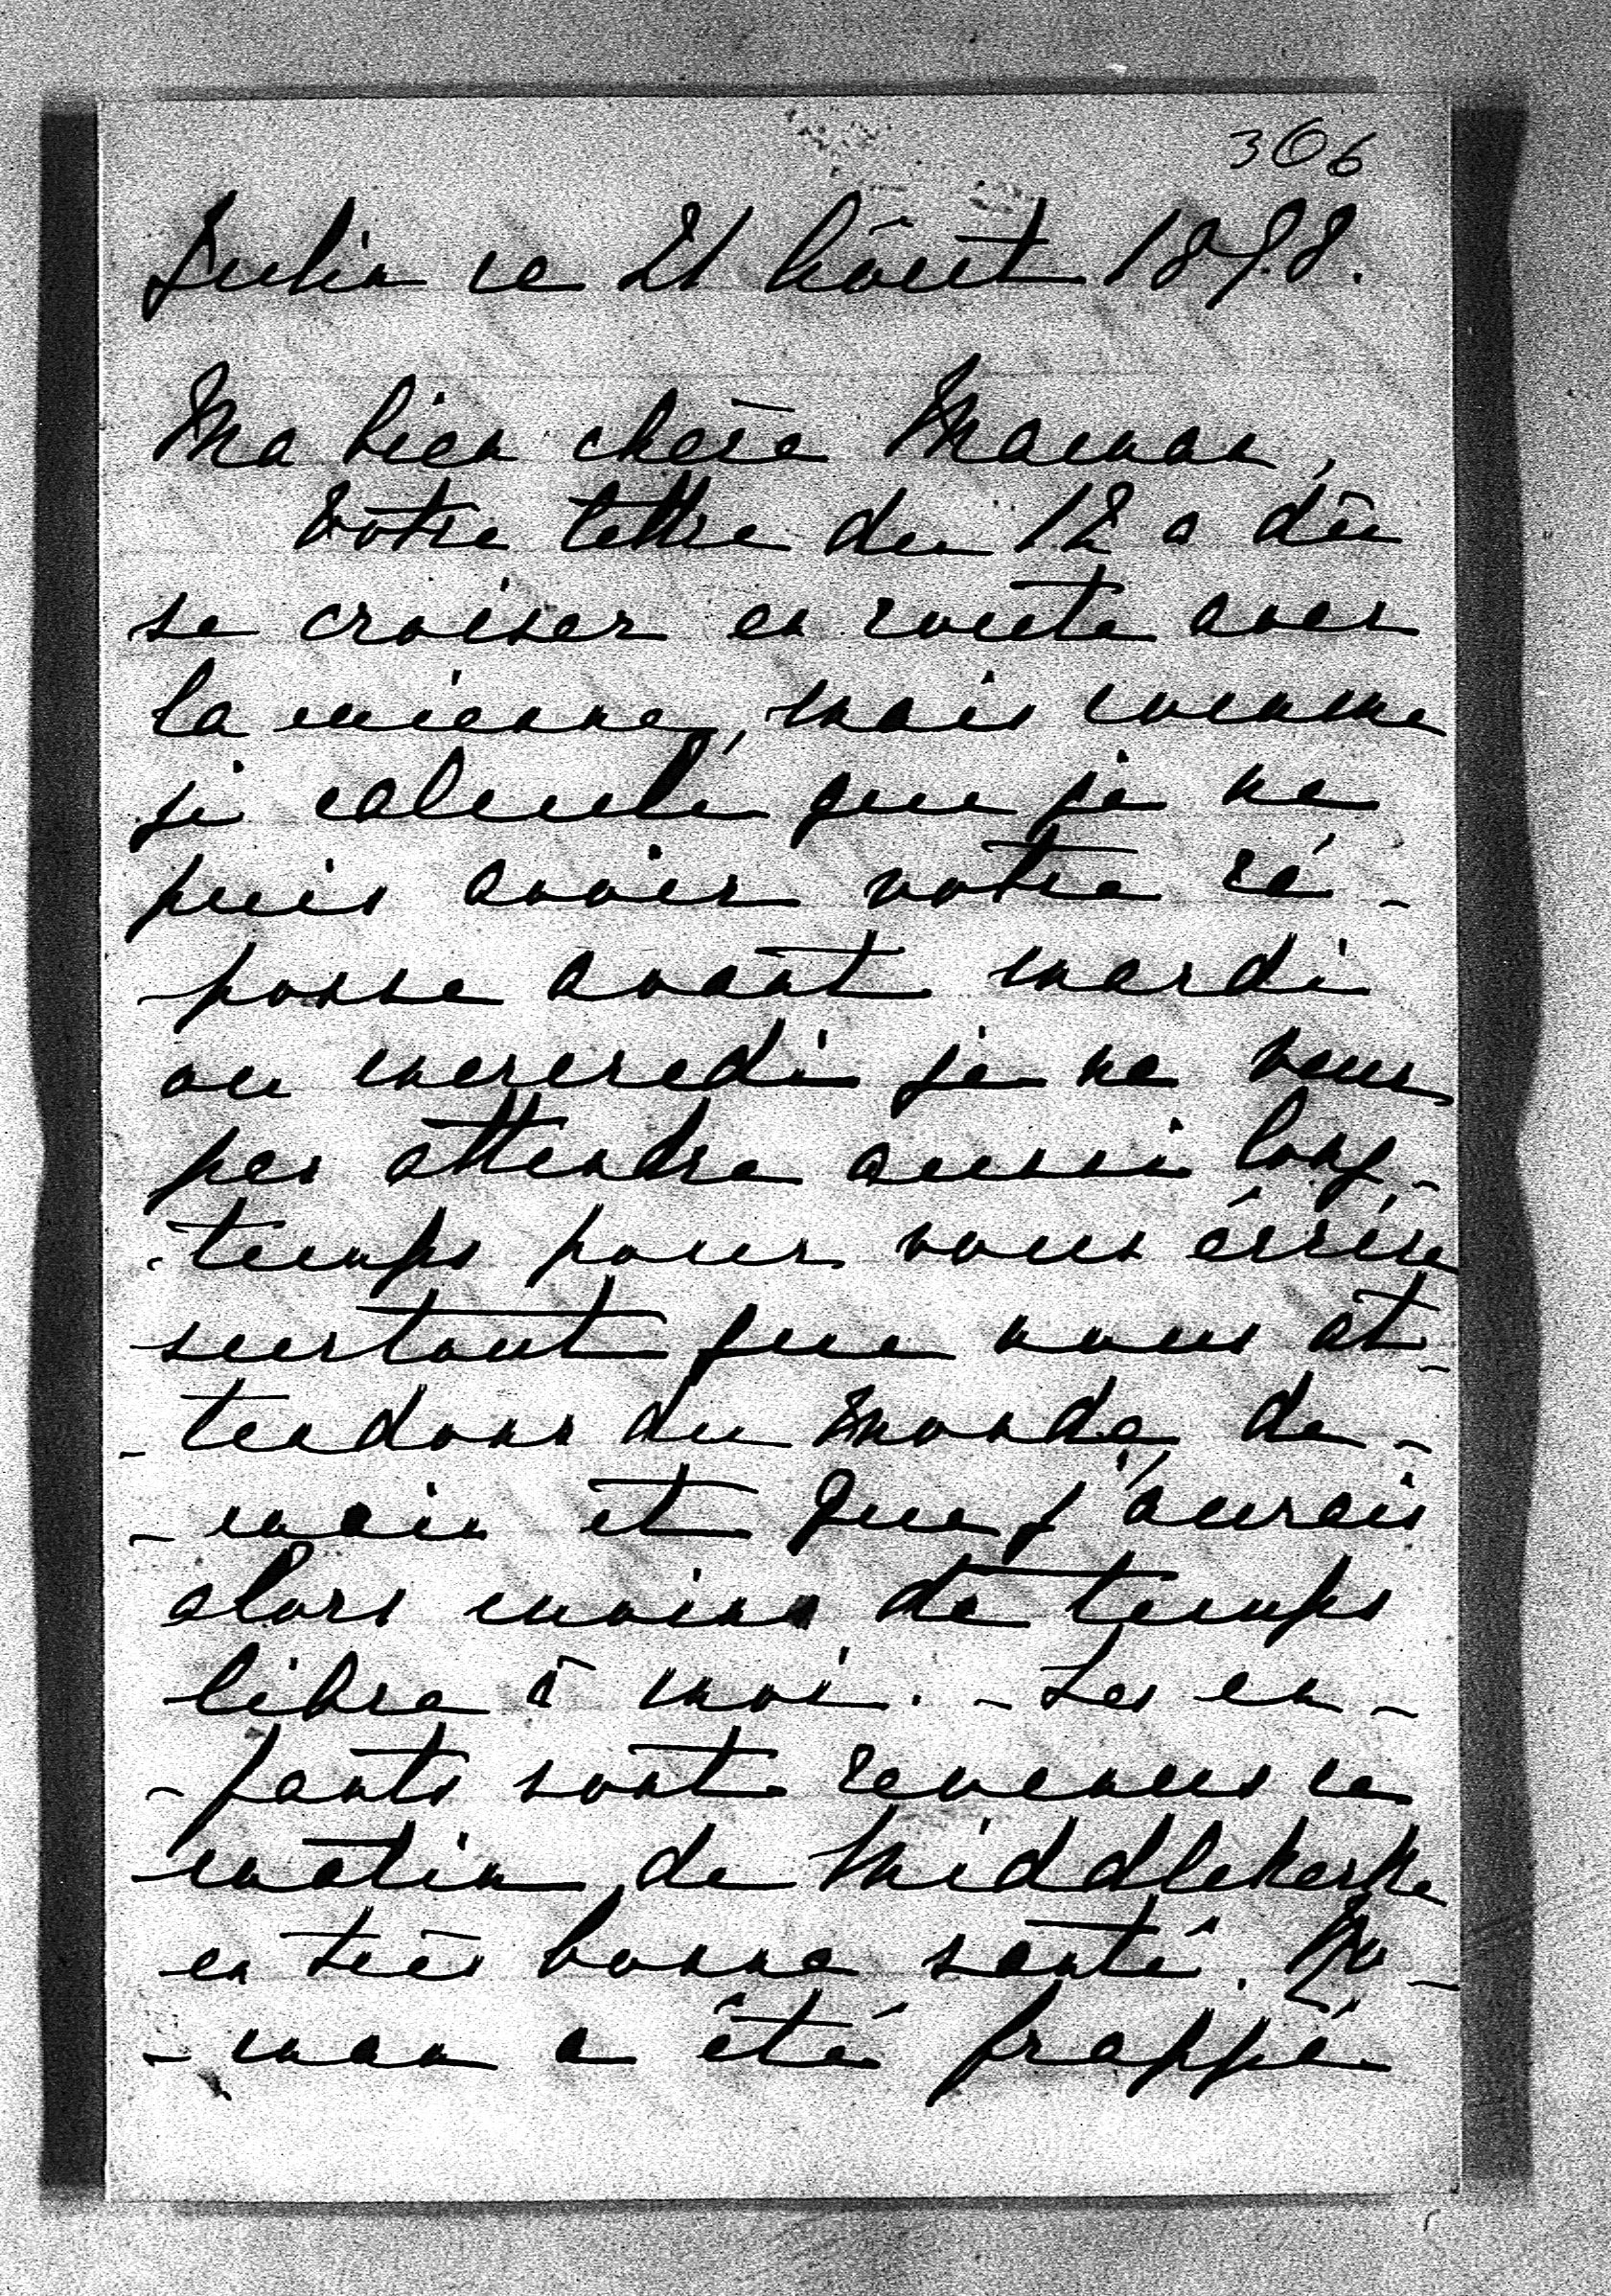 306
ce 21 Août 1898.
Ma bien chère Maman,
Votre lettre du 12 a dû
se croiser en route avec
la mienne, mais comme
je calcule que je ne
puis avoir votre ré-
-ponse avant mardi
ou mercredi je ne veux
pas attendre aussi long-
-temps pour vous écrire
surtout que nous at-
-tendons du monde de-
-main et que j'aurais
alors moins de temps
libre à moi. - Les en-
-fants sont revenus ce
matin de Middlekerke
en très bonne santé. Ma-
-man a été frappée